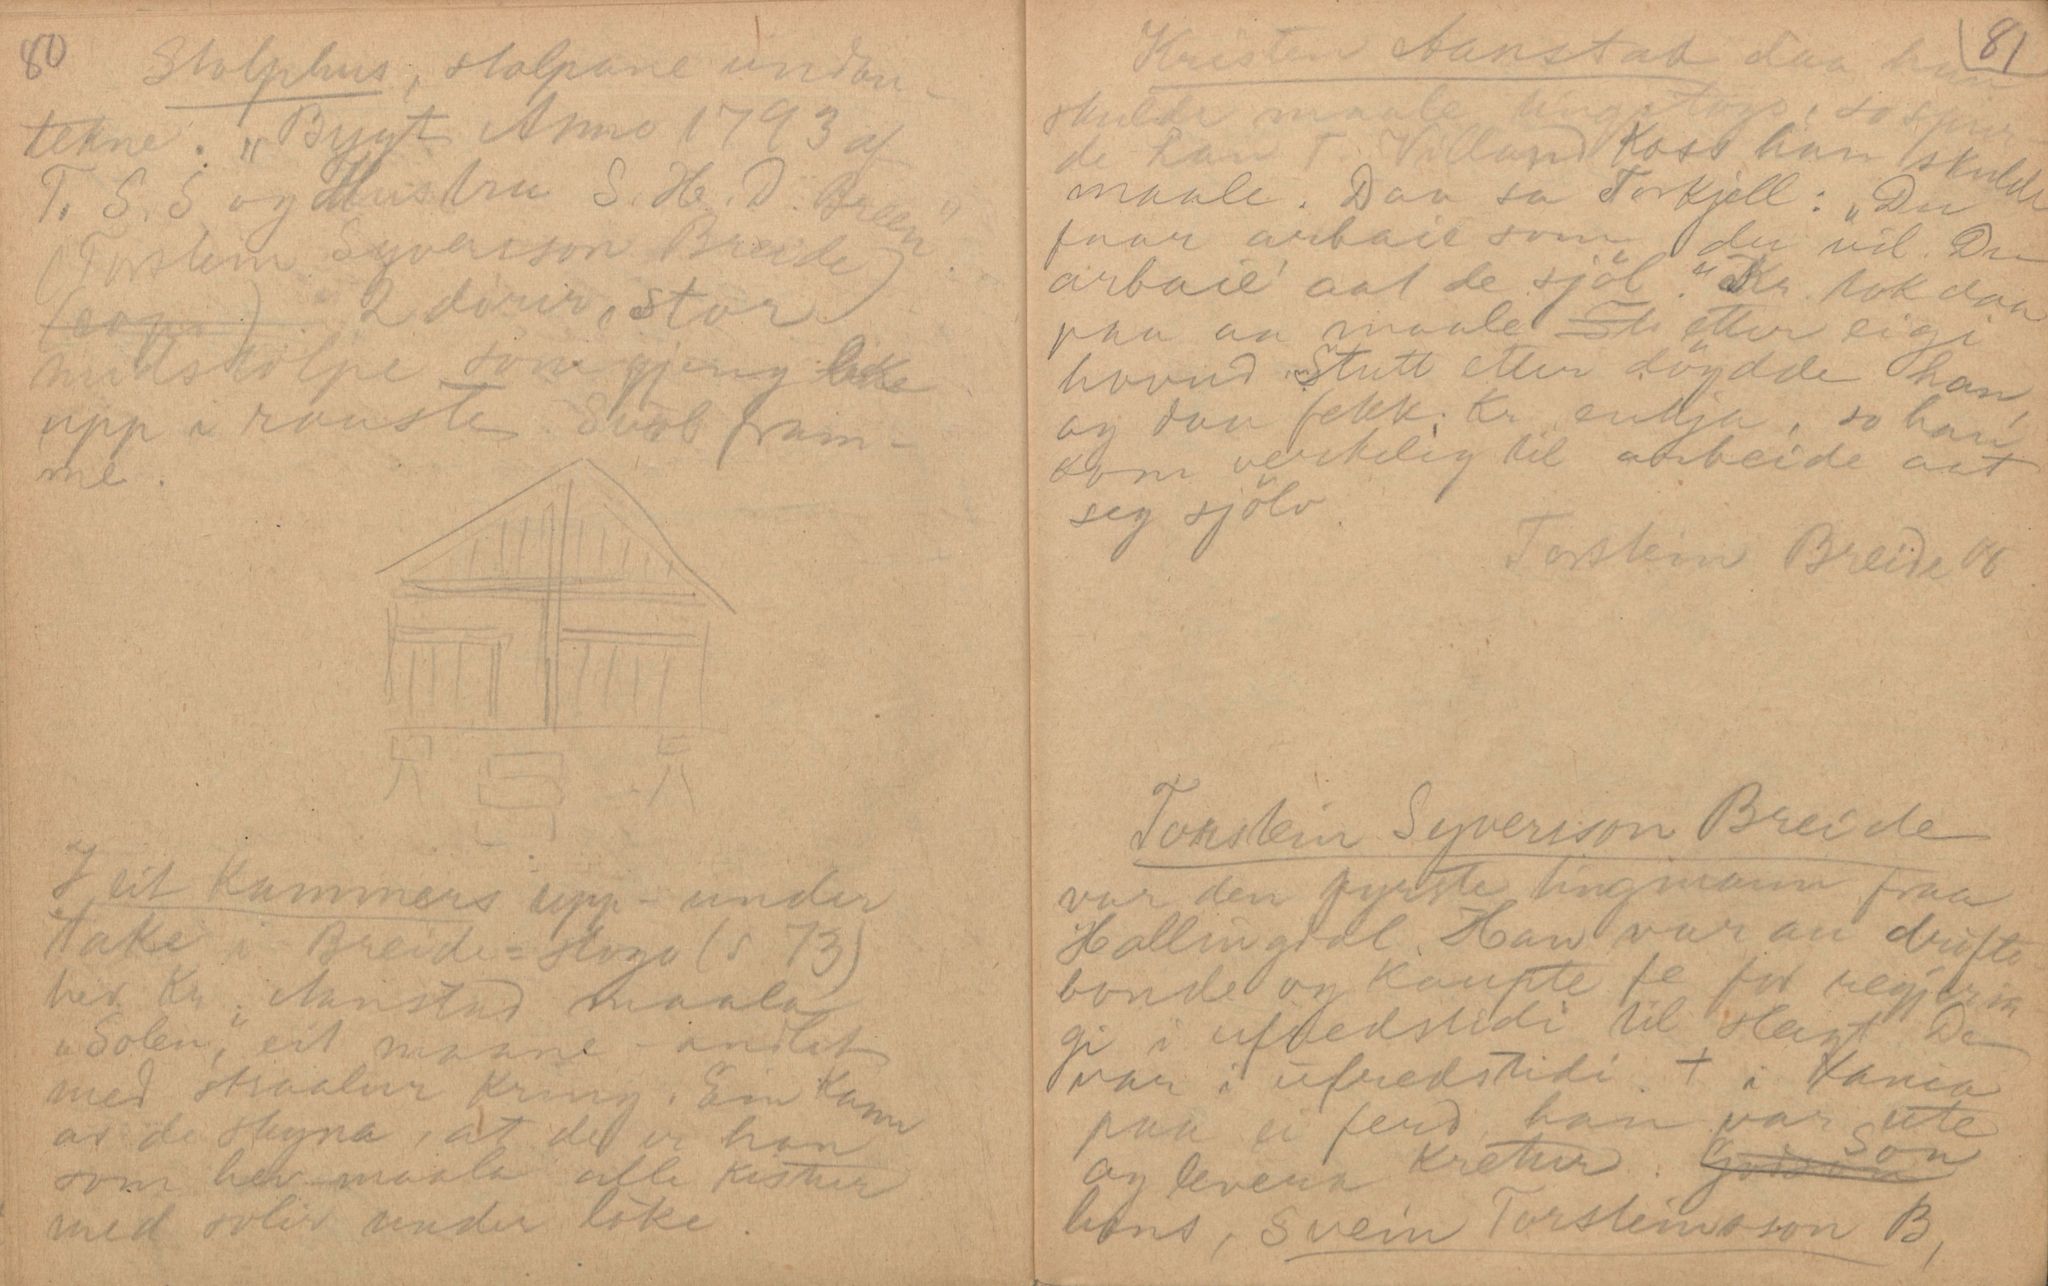 80
Stolphus, stolpane undan-
tekne. „Bygt Anno 1793 af
T. S. S og Hustru S. H. D. Breen"
(Torstein Syverson Breide)
2 dörir, stor
midstolpe som gjeng like
upp i rauste. Sval fram-
me.
I eit kammers upp-under
take i Breide-stogo (s 73)
hev Kr. Aanstad maala
„Solen", eit maane-andlit
med straalur kring. Ein kann
av de skyna, at de er han
som hev maala alle kistur
med solir under loke.
81
Kristen Aanstad daa han
skulde maale tingstogo, so spur-
de han T. Villand koss han skulde
maale. Daa sa Torkjell: „Du
faar arbaie som du vil. Du
arbaie' aat de sjöl." Kr. tok daa
paa aa maale etter eigi
hovud. Stutt etter döydde han,
og daa fekk Kr. enkja, so han
kom verkelig til arbeide aat
seg sjölv.
Torstein Breide 06
Torstein Syverson Breide
var den fyrste tingmann fraa
Hallingdal. Han var au drifte
bonde og kaupte fe for regjerin
gi i ufredstidi til slagt. De
var i ufredstidi. † i Kania
paa ei ferd han var ute
og levera kretur. Son
hans, Svein Torsteinsson B,